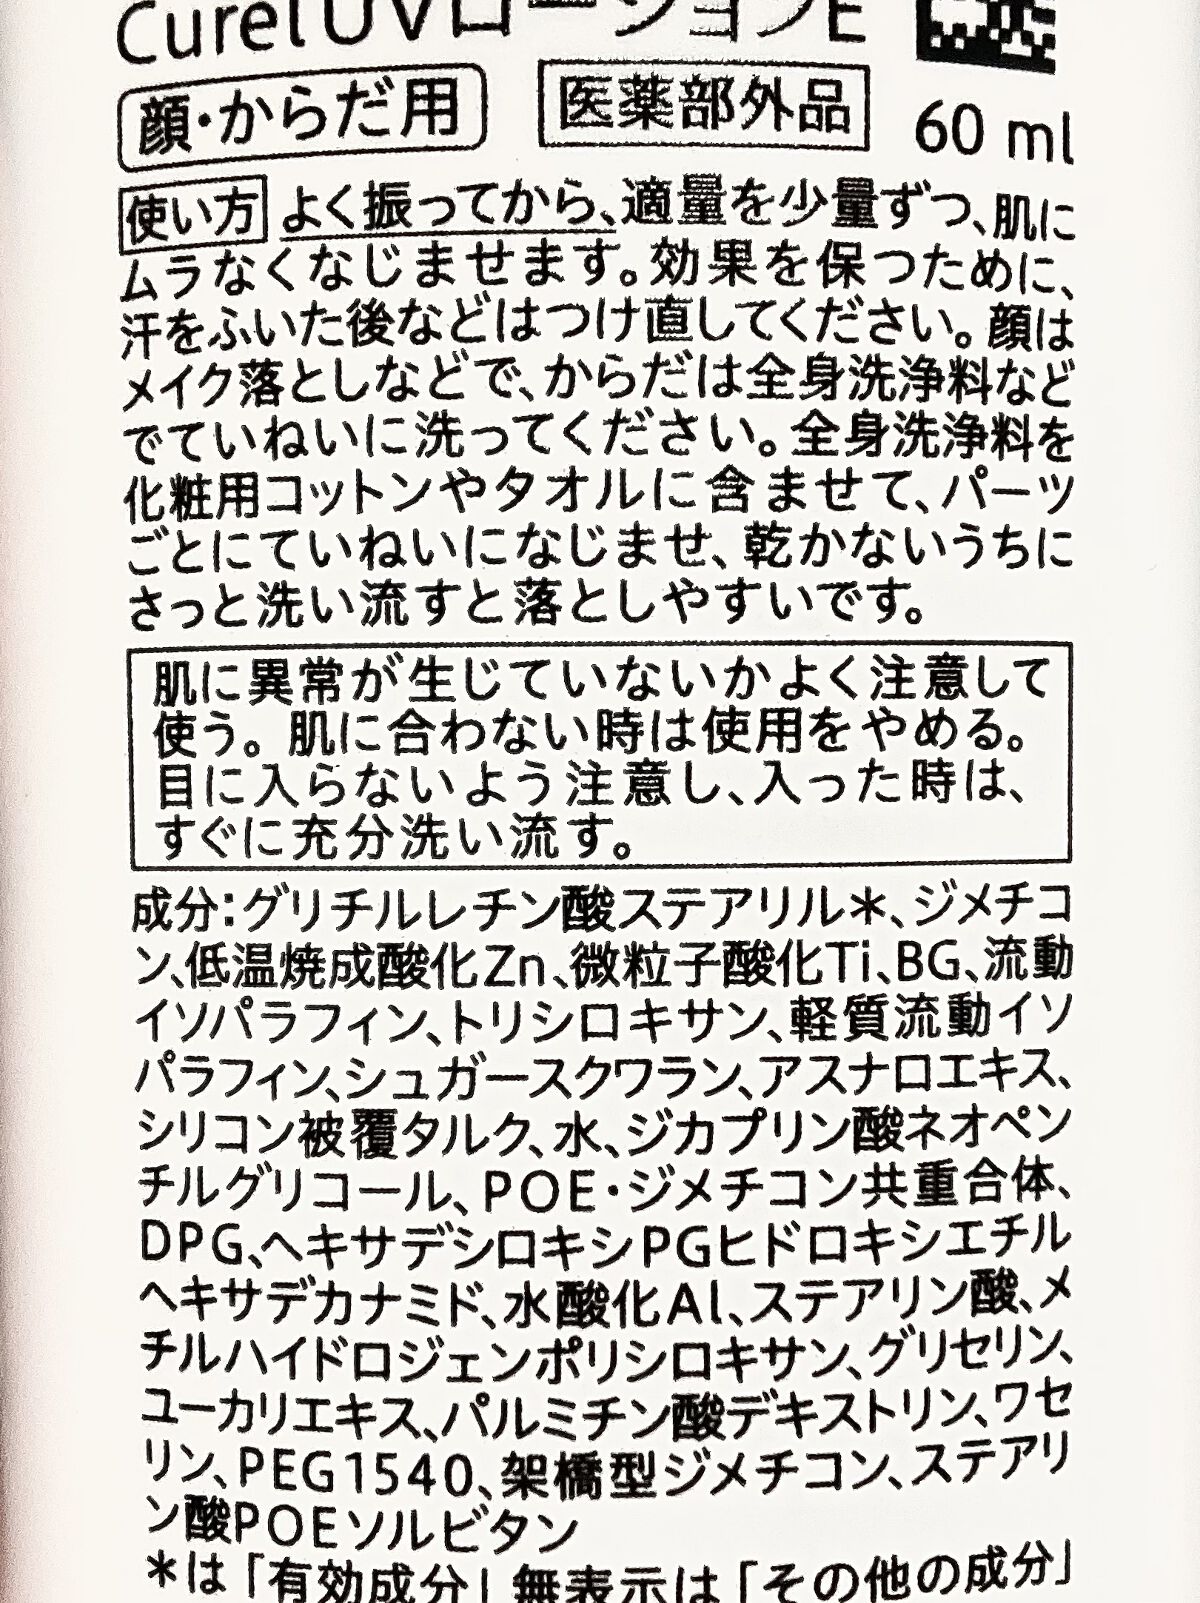 Curel UVローションE
顔・からだ用 医薬部外品 60 ml
使い方 よく振ってから、適量を少量ずつ、肌に
ムラなくなじませます。効果を保つために、
汗をふいた後などはつけ直してください。顔は
メイク落としなどで、からだは全身洗浄料など
でていねいに洗ってください。全身洗浄料を
化粧用コットンやタオルに含ませて、パーツ
ごとにていねいになじませ、乾かないうちに
さっと洗い流すと落としやすいです。
肌に異常が生じていないかよく注意して
使う。肌に合わない時は使用をやめる。
目に入らないよう注意し、入った時は、
すぐに充分洗い流す。
成分：グリチルレチン酸ステアリル＊、ジメチコ
ン、低温焼成酸化Zn、微粒子酸化Ti、BG、流動
イソパラフィン、トリシロキサン、軽質流動イソ
パラフィン、シュガースクワラン、アスナロエキス、
シリコン被覆タルク、水、ジカプリン酸ネオペン
チルグリコール、POE・ジメチコン共重合体、
DPG、ヘキサデシロキシPGヒドロキシエチル
ヘキサデカナミド、水酸化Al、ステアリン酸、メ
チルハイドロジェンポリシロキサン、グリセリン、
ユーカリエキス、パルミチン酸デキストリン、ワセ
リン、PEG1540、架橋型ジメチコン、ステアリ
ン酸POEソルビタン
＊は「有効成分」無表示は「その他の成分」